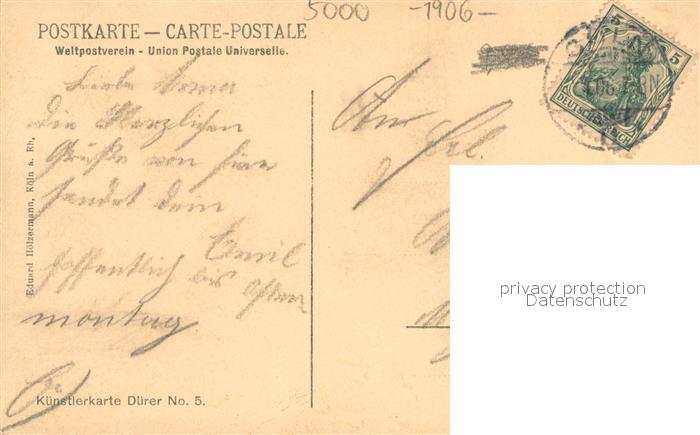 5000 -1906-
POSTKARTE — CARTE-POSTALE
Weltpostverein - Union Postale Universelle.
5 5
DEUTSCHES REICH
Liebe
die Herzlichen
Grüße von hier
sendet dein
Emil
hoffentlich bis Oster
montag
An
Frl.
Eduard Hölzermann, Köln a. Rh.
Künstlerkarte Dürer No. 5.
privacy protection
Datenschutz